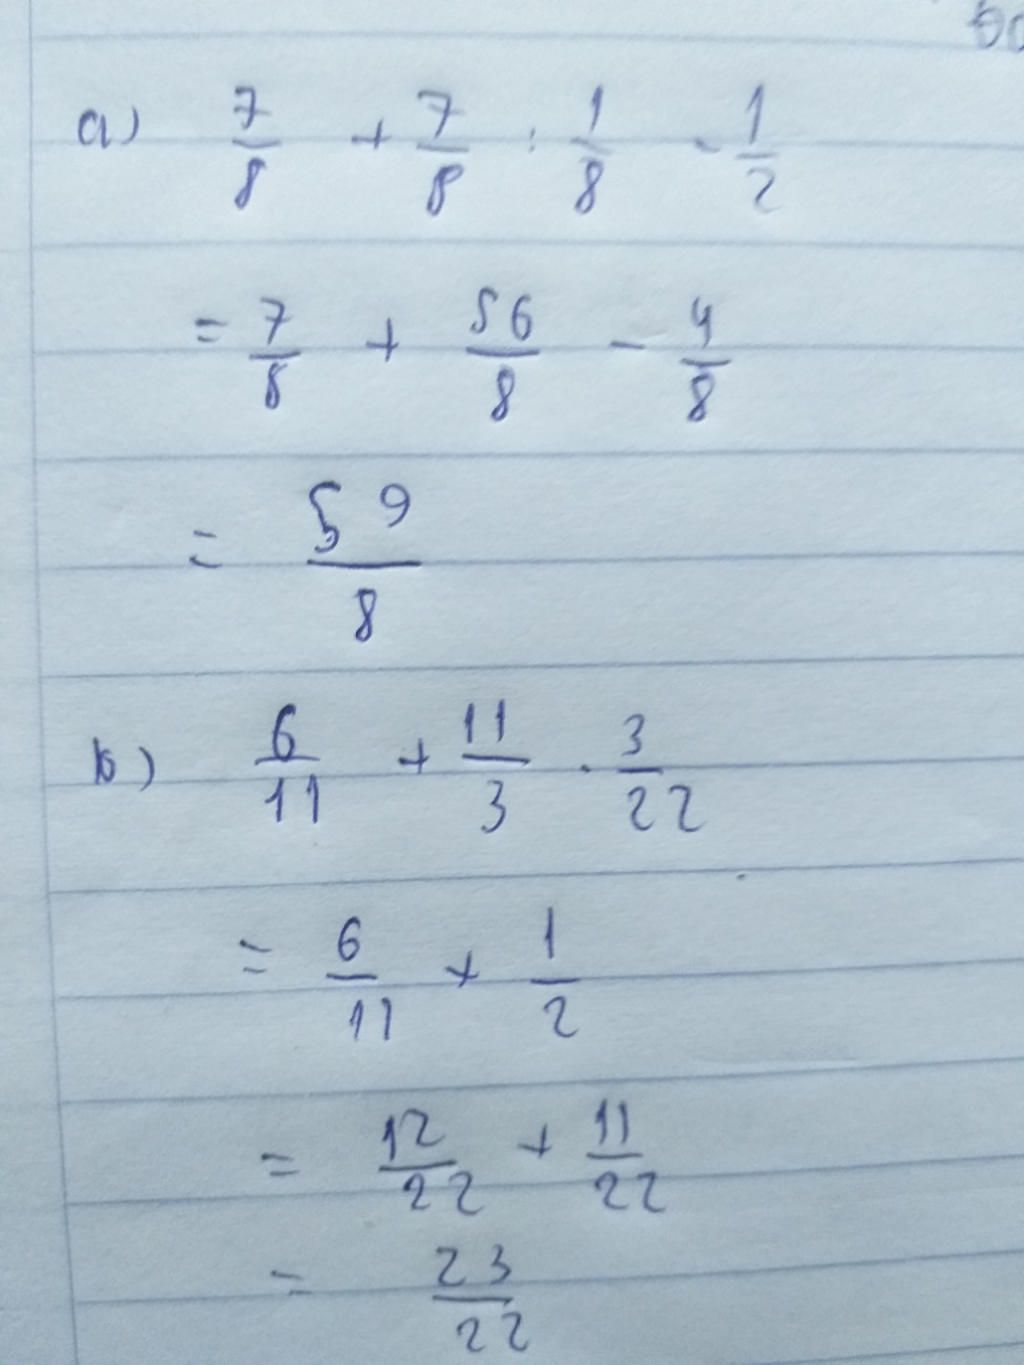 a) 7/8 + 7/8 : 1/8 - 1/2
= 7/8 + 56/8 - 4/8
= 59/8
b) 6/11 + 11/3 . 3/22
= 6/11 + 1/2
= 12/22 + 11/22
= 23/22